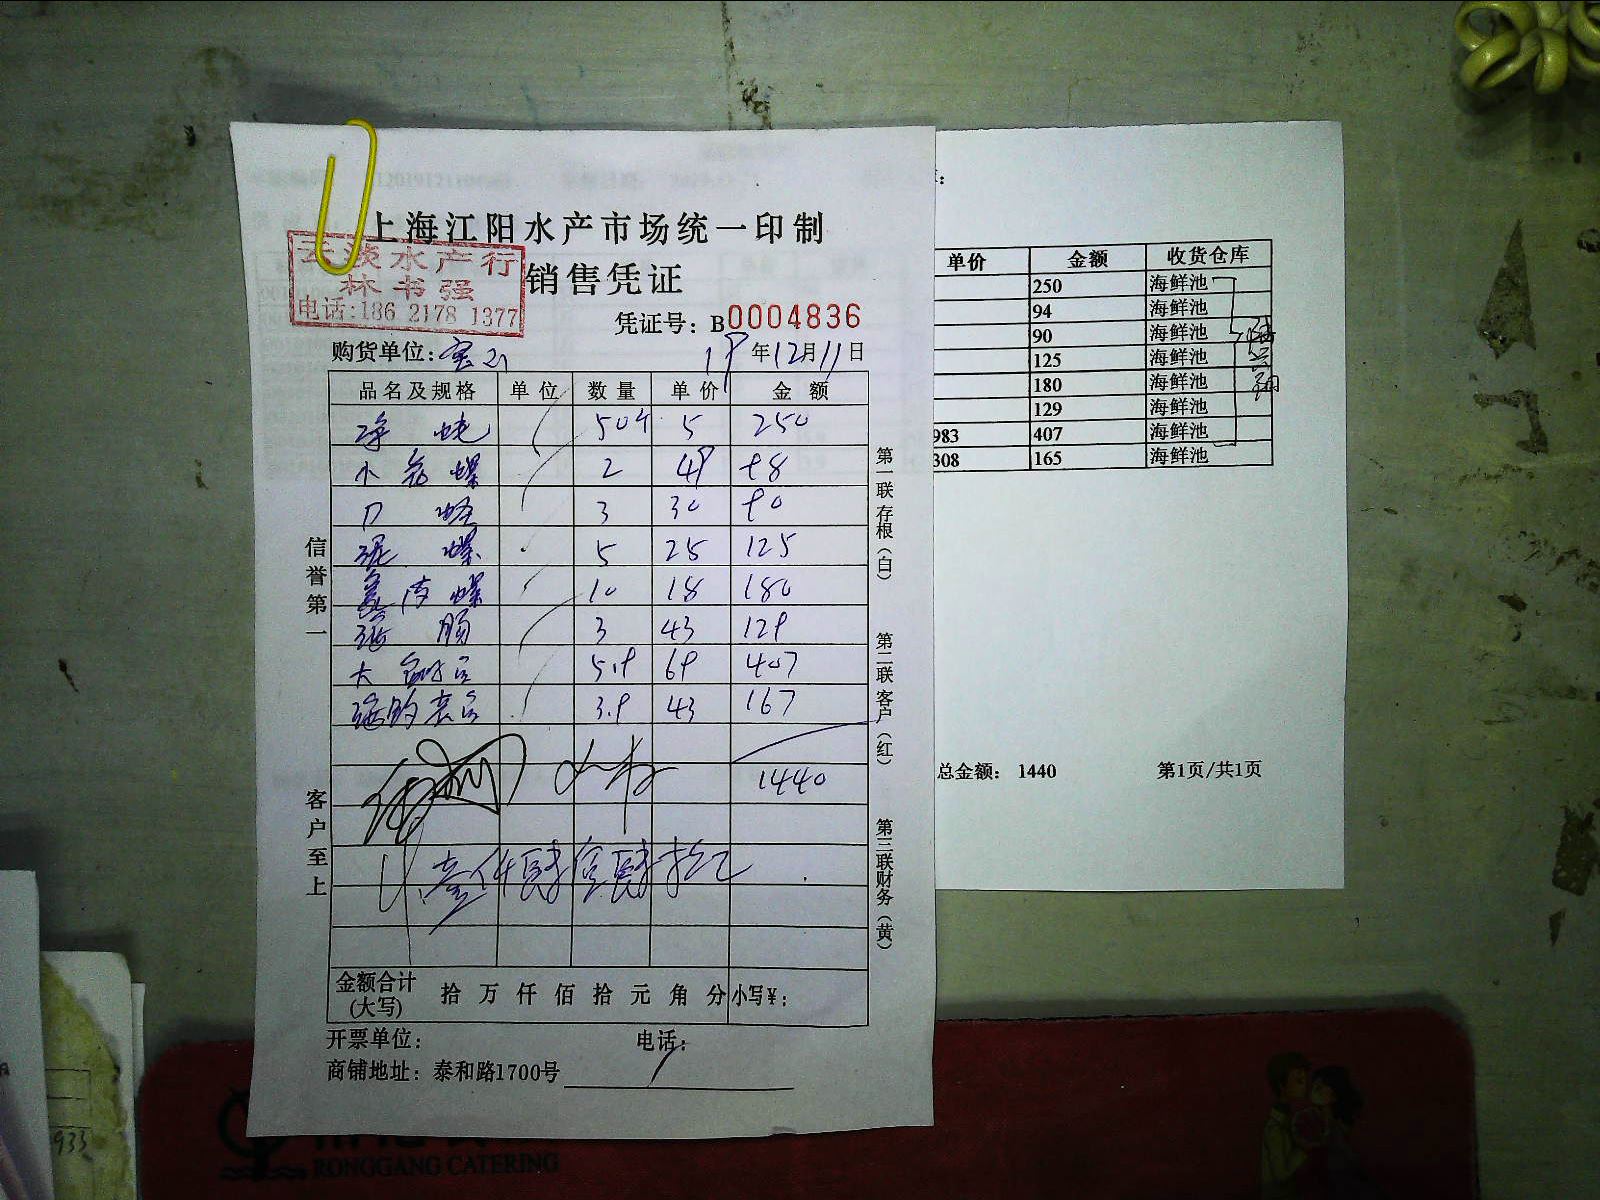 上海江阳水产市场统一印制
云淡水产行
林书强
电话:186 2178 1377
销售凭证
凭证号: B0004836
购货单位: 宝山
19年12月11日
品名及规格 单位 数量 单价 金额
净 蛏 50斤 5 250
小 花螺 2 49 98
3 30 90
5 25 125
螺 10 18 180
肠 3 43 129
大 5.9 69 407
3.9 43 167
1440
壹仟肆佰肆拾元
金额合计(大写) 拾 万 仟 佰 拾 元 角 分 小写¥:
开票单位: 电话:
商铺地址: 泰和路1700号
信誉第一
客户至上
第一联存根(白)
第二联客户(红)
第三联财务(黄)
单价 金额 收货仓库
250 海鲜池
94 海鲜池
90 海鲜池
125 海鲜池
180 海鲜池
129 海鲜池
983 407 海鲜池
308 165 海鲜池
总金额: 1440 第1页/共1页
933
RONGGANG CATERING